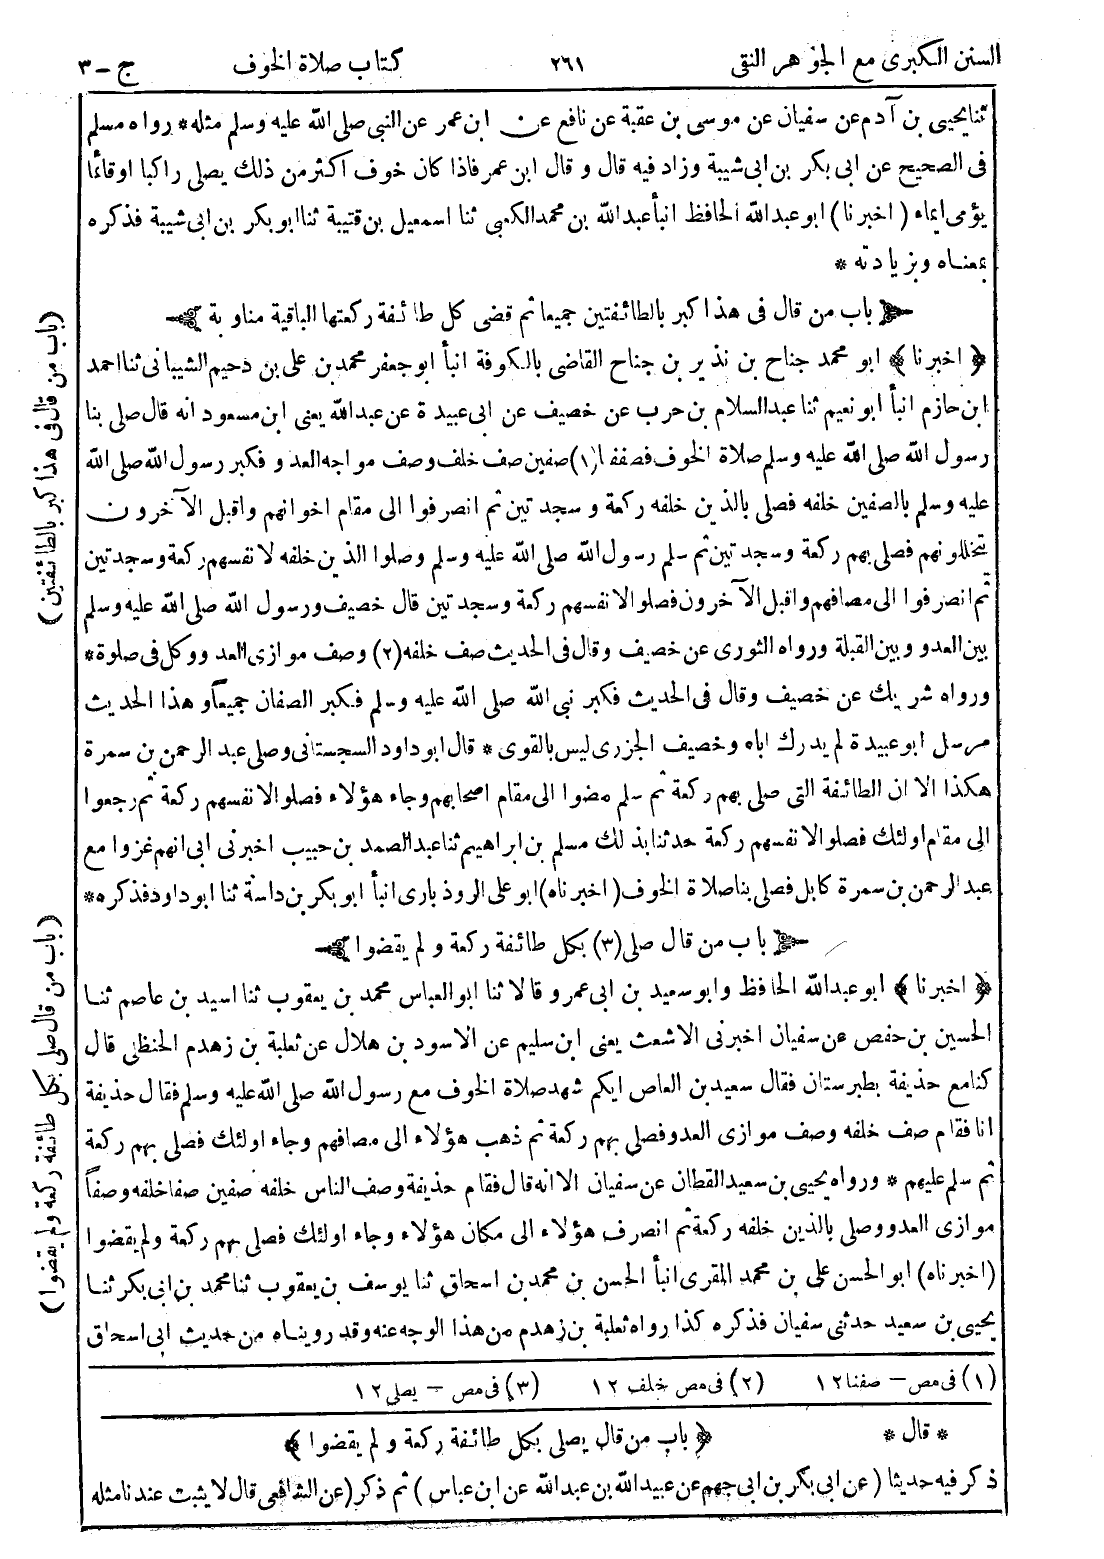 السنن الكبرى مع الجوهر النقى ٢٦١ كتاب صلاة الخوف ج-٣
ثنا يحيى بن آدم عن سفيان عن موسى بن عقبة عن نافع عن ابن عمر عن النبى صلى الله عليه وسلم مثله * رواه مسلم
فى الصحيح عن ابى بكر بن ابى شيبة وزاد فيه قال و قال ابن عمر فاذا كان خوف اكثر من ذلك يصلى راكبا او قائما
يؤمى ايماء ( اخبرنا ) ابو عبدالله الحافظ انبأ عبدالله بن محمد الكعبى ثنا اسمعيل بن قتيبة ثنا ابو بكر بن ابى شيبة فذكره
بمعناه وبزيادته *
﴿ باب من قال فى هذا كبر بالطائفتين جميعا ثم قضى كل طائفة ركعتها الباقية مناوبة ﴾
﴿ اخبرنا ﴾ ابو محمد جناح بن نذير بن جناح القاضى بالكوفة انبأ ابو جعفر محمد بن على بن دحيم الشيبانى ثنا احمد
ابن حازم انبأ ابو نعيم ثنا عبد السلام بن حرب عن خصيف عن ابى عبيدة عن عبدالله يعنى ابن مسعود انه قال صلى بنا
رسول الله صلى الله عليه وسلم صلاة الخوف فصففا (١) صفين صف خلف وصف مواجه العدو فكبر رسول الله صلى الله
عليه وسلم بالصفين خلفه فصلى بالذين خلفه ركعة وسجدتين ثم انصرفوا الى مقام اخوانهم واقبل الآخرون
يتخللونهم فصلى بهم ركعة وسجدتين ثم سلم رسول الله صلى الله عليه وسلم وصلوا الذين خلفه لانفسهم ركعة وسجدتين
ثم انصرفوا الى مصافهم واقبل الآخرون فصلوا لانفسهم ركعة وسجدتين قال خصيف ورسول الله صلى الله عليه وسلم
بين العدو وبين القبلة ورواه الثورى عن خصيف وقال فى الحديث صف خلفه (٢) وصف موازى العدو وكل فى صلوة *
ورواه شريك عن خصيف وقال فى الحديث فكبر نبى الله صلى الله عليه وسلم فكبر الصفان جميعاً وهذا الحديث
مرسل ابو عبيدة لم يدرك اباه وخصيف الجزرى ليس بالقوى * قال ابو داود السجستانى وصلى عبد الرحمن بن سمرة
هكذا الا ان الطائفة التى صلى بهم ركعة ثم سلم مضوا الى مقام اصحابهم وجاء هؤلاء فصلوا لانفسهم ركعة ثم رجعوا
الى مقام اولئك فصلوا لانفسهم ركعة حدثنا بذلك مسلم بن ابراهيم ثنا عبد الصمد بن حبيب اخبرنى ابى انهم غزوا مع
عبد الرحمن بن سمرة كابل فصلى بنا صلاة الخوف ( اخبرناه ) ابو على الروذبارى انبأ ابو بكر بن داسة ثنا ابو داود فذكره *
﴿ باب من قال صلى (٣) بكل طائفة ركعة ولم يقضوا ﴾
﴿ اخبرنا ﴾ ابو عبدالله الحافظ وابو سعيد بن ابى عمرو قالا ثنا ابو العباس محمد بن يعقوب ثنا اسيد بن عاصم ثنا
الحسين بن حفص عن سفيان اخبرنى الاشعث يعنى ابن سليم عن الاسود بن هلال عن ثعلبة بن زهدم الحنظلى قال
كنا مع حذيفة بطبرستان فقال سعيد بن العاص ايكم شهد صلاة الخوف مع رسول الله صلى الله عليه وسلم فقال حذيفة
انا فقام صف خلفه وصف موازى العدو فصلى بهم ركعة ثم ذهب هؤلاء الى مصافهم وجاء اولئك فصلى بهم ركعة
ثم سلم عليهم * ورواه يحيى بن سعيد القطان عن سفيان الا انه قال فقام حذيفة وصف الناس خلفه صفين صفا خلفه وصفاً
موازى العدو وصلى بالذين خلفه ركعة ثم انصرف هؤلاء الى مكان هؤلاء وجاء اولئك فصلى بهم ركعة ولم يقضوا
( اخبرناه ) ابو الحسن على بن محمد المقرى انبأ الحسن بن محمد بن اسحاق ثنا يوسف بن يعقوب ثنا محمد بن ابى بكر ثنا
يحيى بن سعيد حدثنى سفيان فذكره كذا رواه ثعلبة بن زهدم من هذا الوجه عنه وقد رويناه من حديث ابى اسحاق
(١) فى مص – صفنا ١٢ (٢) فى مص خلف ١٢ (٣) فى مص – يصلى ١٢
* قال * ﴿ باب من قال يصلى بكل طائفة ركعة ولم يقضوا ﴾
ذكر فيه حديثا ( عن ابى بكر بن ابى جهم عن عبيدالله بن عبدالله عن ابن عباس ) ثم ذكر ( عن الشافعى قال لا يثبت عندنا مثله
(باب من قال فى هذا كبر بالطائفتين)
(باب من قال صلى بكل طائفة ركعة ولم يقضوا)